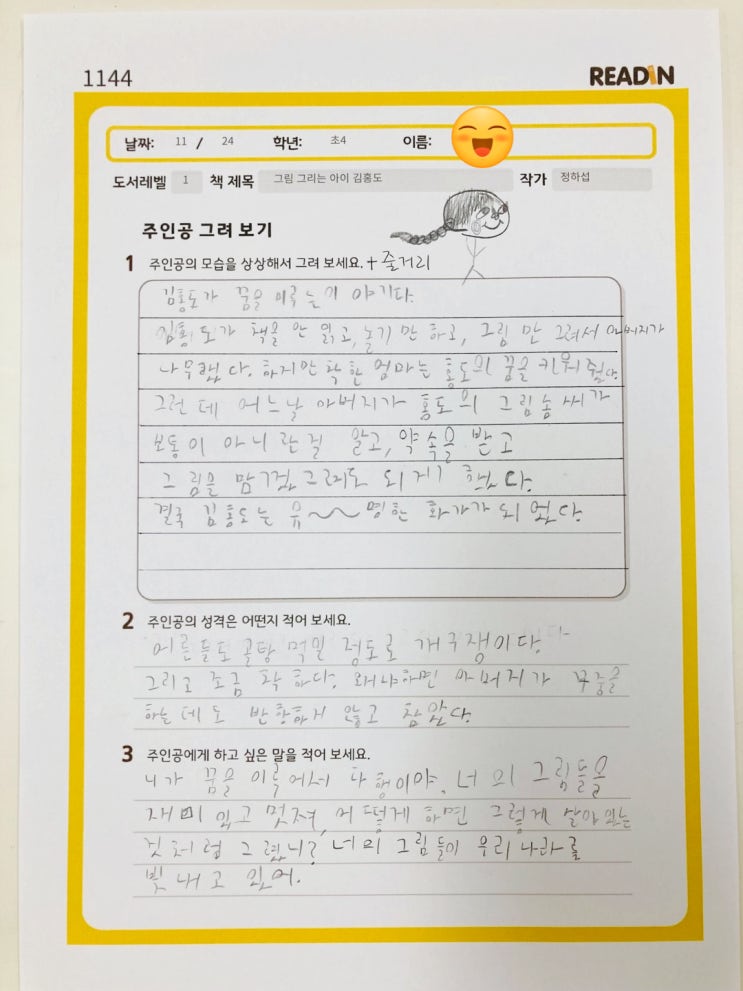 1144
READiN
날짜: 11 / 24 학년: 초4 이름:
도서레벨 1 책 제목 그림 그리는 아이 김홍도 작가 정하섭
주인공 그려 보기
1 주인공의 모습을 상상해서 그려 보세요. + 줄거리
김홍도가 꿈을 이루는 이야기다.
김홍도가 책을 안 읽고, 놀기만 하고, 그림만 그려서 아버지가
나무랬다. 하지만 착한 엄마는 홍도의 꿈을 키워줬다.
그런데 어느날 아버지가 홍도의 그림솜씨가
보통이 아니란걸 알고, 약속을 받고
그림을 맘껏 그려도 되게 했다.
결국 김홍도는 유~~명한 화가가 되었다.
2 주인공의 성격은 어떤지 적어 보세요.
어른들도 골탕 먹일 정도로 개구쟁이다.
그리고 조금 착하다. 왜냐하면 아버지가 꾸중을
하는데도 반항하지 않고 참았다.
3 주인공에게 하고 싶은 말을 적어 보세요.
니가 꿈을 이루어서 다행이야. 너의 그림들을
재미있고 멋져, 어떻게 하면 그렇게 살아있는
것처럼 그렸니? 너의 그림들이 우리나라를
빛내고 있어.